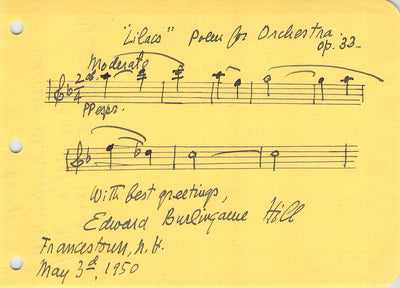 "Lilacs" Poem for Orchestra
op. 33
Moderato
2
4
PP espr.
With best greetings,
Edward Burlingame Hill
Francestown, N.H.
May 3rd, 1950